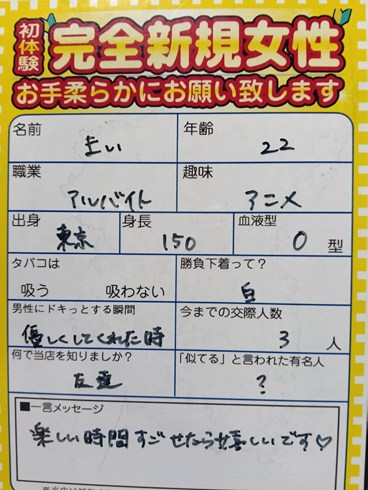 初体験 完全新規女性
お手柔らかにお願い致します
名前 まい 年齢 22
職業 アルバイト 趣味 アニメ
出身 東京 身長 150 血液型 O 型
タバコは 吸う 吸わない 勝負下着って? 白
男性にドキっとする瞬間 優しくしてくれた時 今までの交際人数 3 人
何で当店を知りましたか? 友達 「似てる」と言われた有名人 ?
■一言メッセージ
楽しい時間すごせたら嬉しいです♡